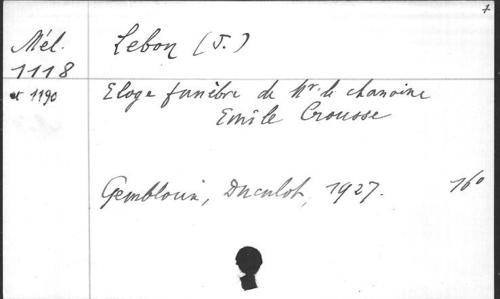 7
Mél. Lebon (J.)
1118
et 1190 Eloge funèbre de Mr. le chanoine
Emile Crousse
Gembloux, Duculot, 1927. 16°